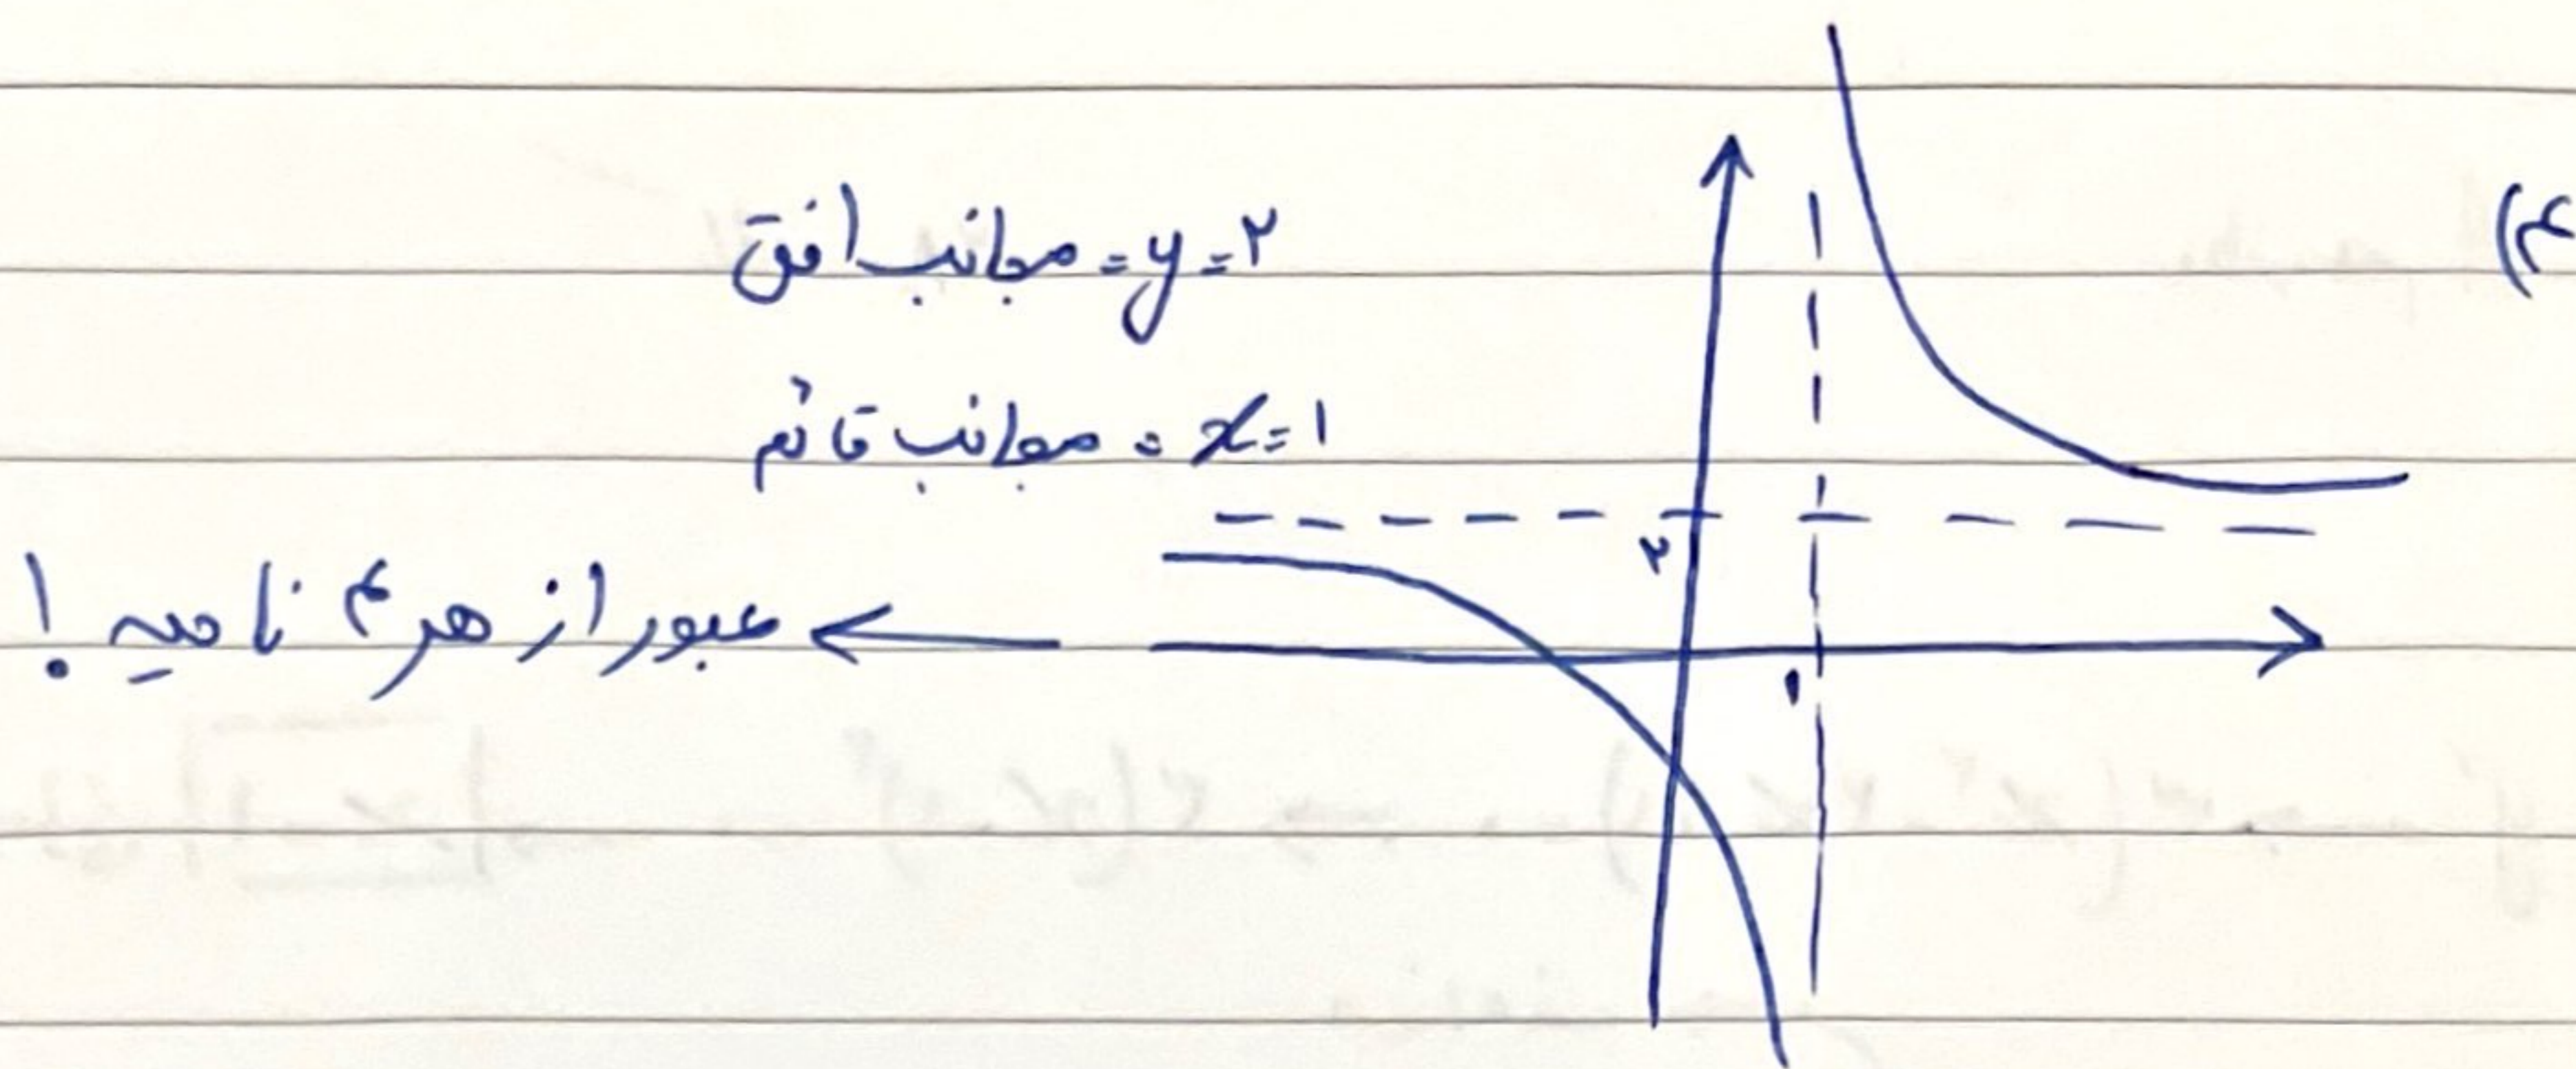 ۴)
مجانب افقی = y = ۲
مجانب قائم = x = ۱
۲
عبور از هر ۴ ناحیه !
۱